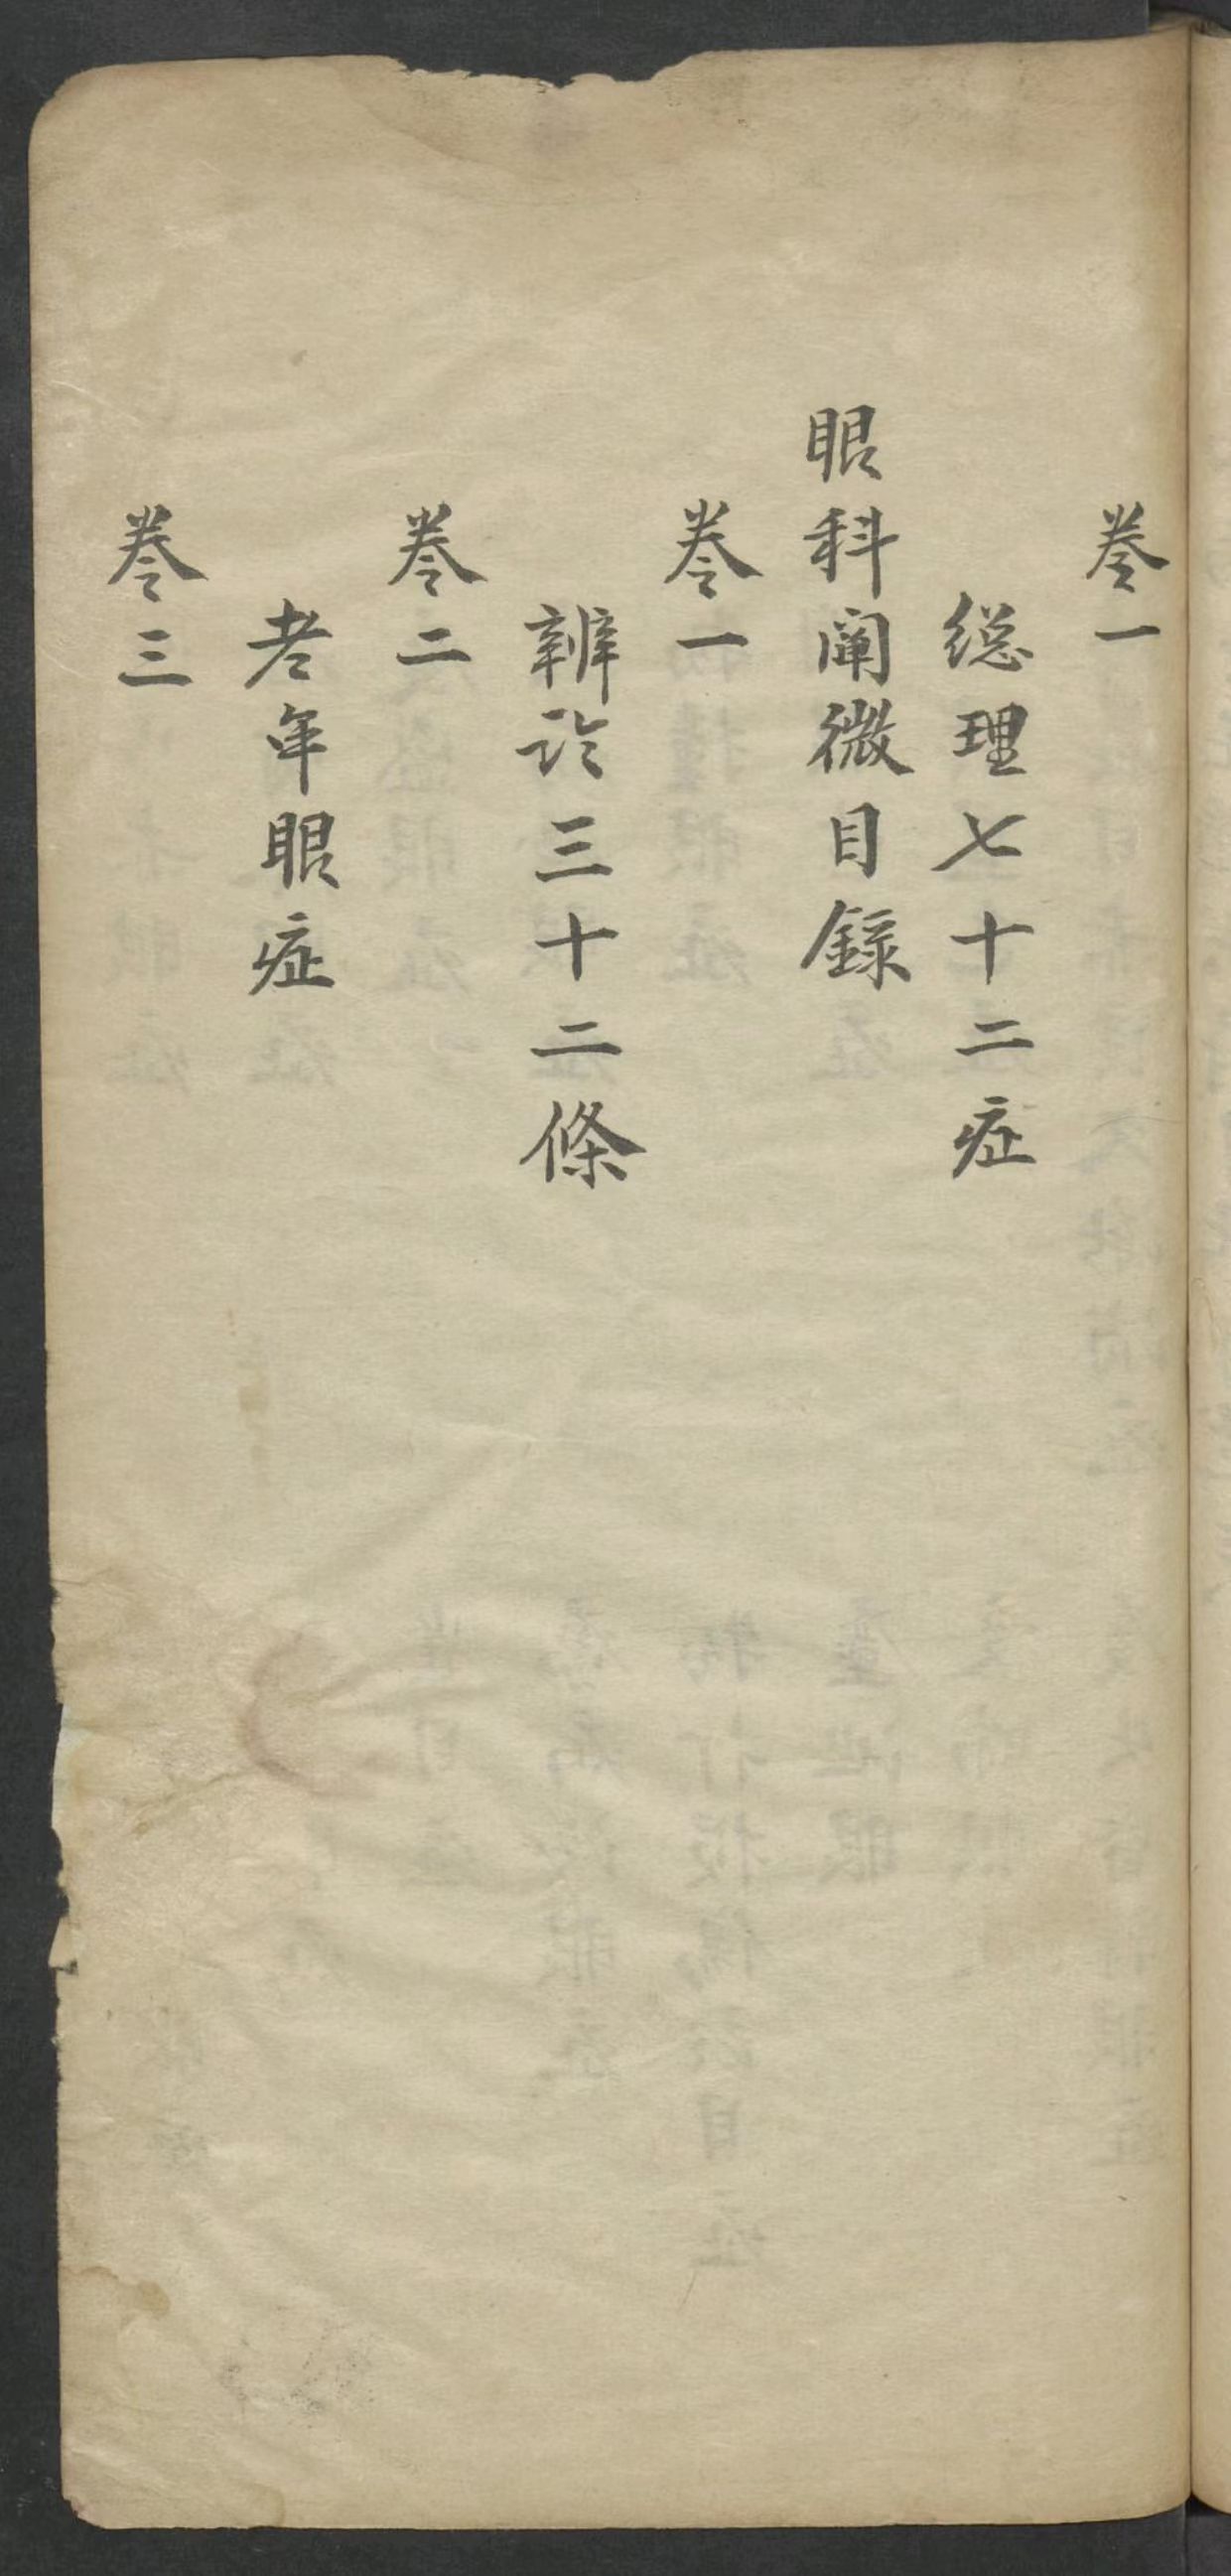 卷一
総理七十二症
眼科闡微目録
卷一
辨論三十二條
卷二
老年眼症
卷三